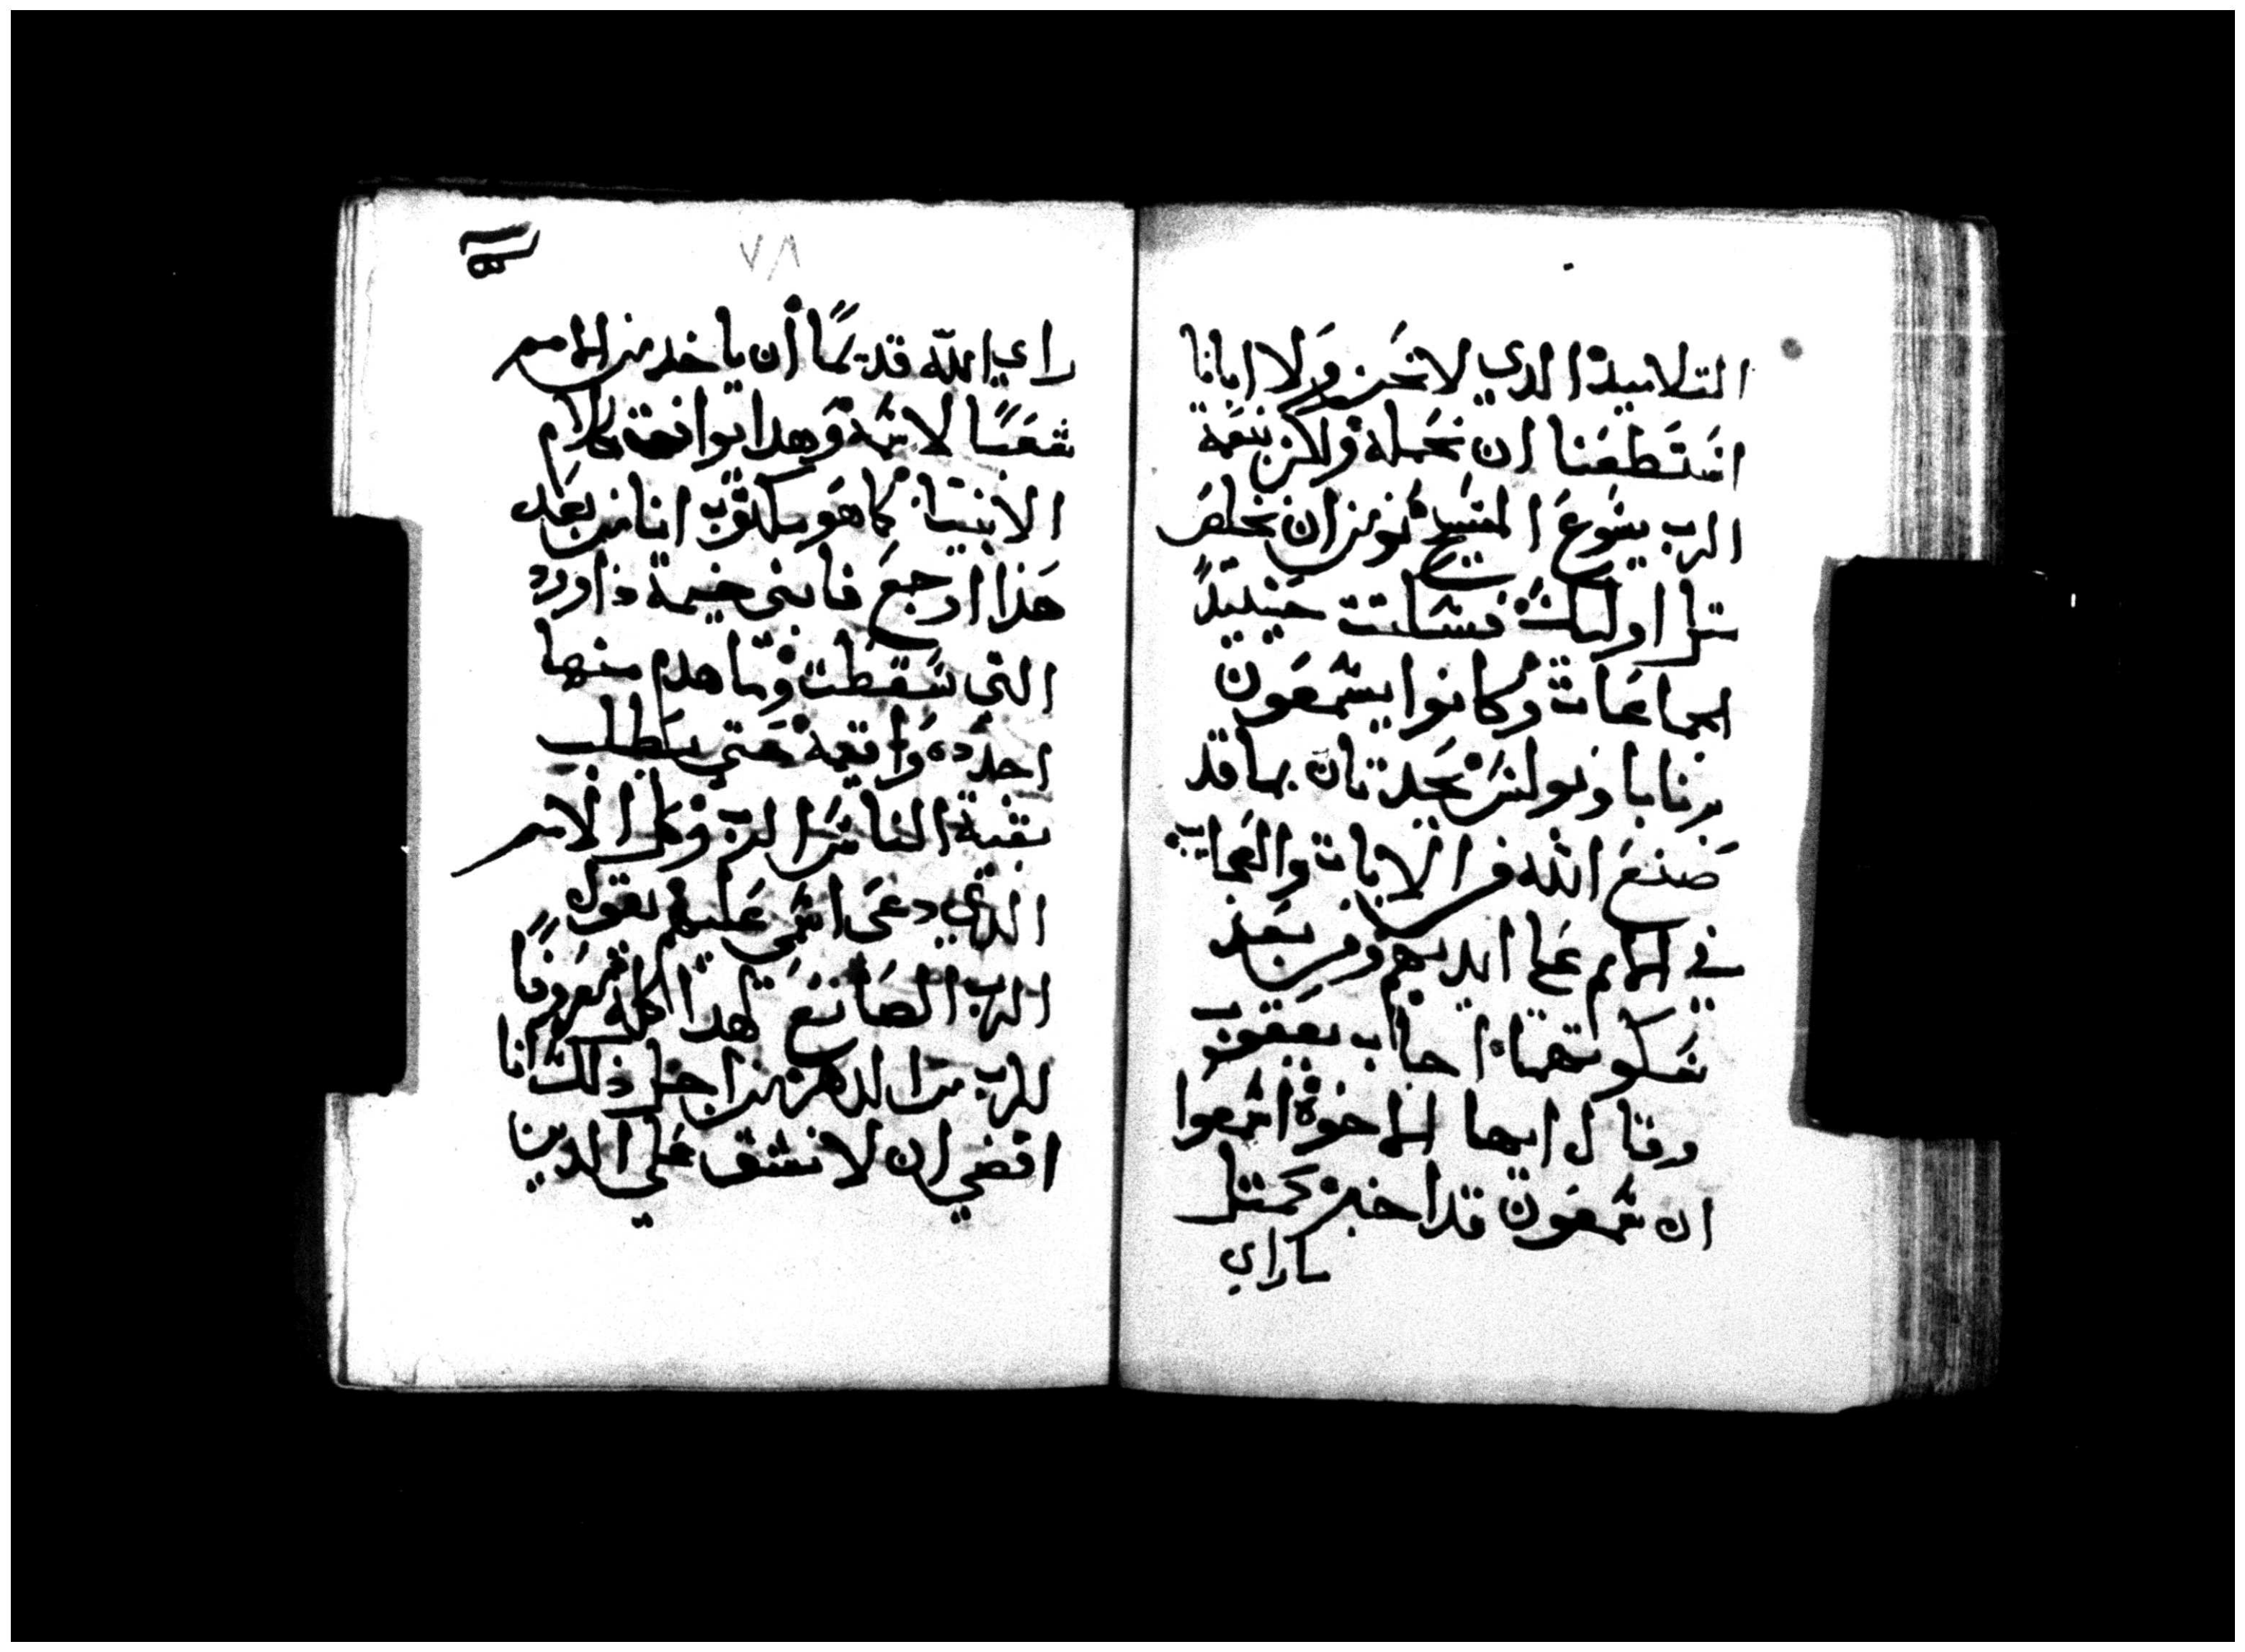 التلاميذ الدي لا نحن ولا ابانا
استطعنا ان نحمله ولكن بنعمة
الرب يسوع المسيح نومن ان نخلص
مثل اوليك فسكتت حينيدً
الجماعات وكانوا يسمعون
برنابا وبولس يحدتان بما قد
صنع الله من الايات والعجايب
في الامم على ايديهم ومن بعد
سكوتهما اجاب يعقوب
وقال ايها الاخوة اسمعوا
ان سمعون قد اخبركم مثل
ما راي
٧٨
راي الله قديمًا أن ياخد من الامم
شعبًا لاسمه وهدا يوافقه كلام
الانبيا كما هو مكتوب انا من بعد
هذا ارجع فابني خيمة داوود
التي سقطت وما هدم منها
اجدده واقيمه حتى يطلب
بقية الناس الرب وكل الامم
الذي دعى اسمي عليهم يقول
الرب الصانع لهدا كله معروفًا
للرب من الدهر من اجل ذلك انا
اقضي ان لا نشق على الدين